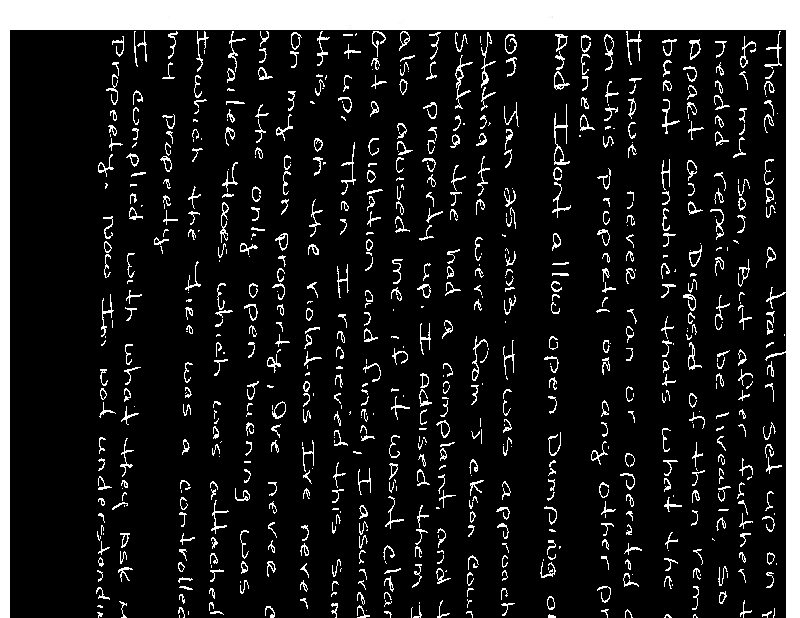 There was a trailer set up on
for my son, But after further
needed repair to be liveable, so
Apart and Disposed of then
buent Inwhich thats what the
I have never ran or operated
on this property or any other
owned.
And I dont allow open Dumping
on Jan 25, 2013. I was approach
Stating the were from Jckson Coun
Stating the had a complaint and
my property up. I Advised them I
also advised me. if it wasnt clean
Get a violation and fined, I assured
it up, Then I recieved this sum
this, on the violations Ive never
on my own property, Ive never
and the only open buening was
trailer floors which was attached
Inwhich the fire was a controlled
my property
I complied with what they ask
Property. now Im not understandin